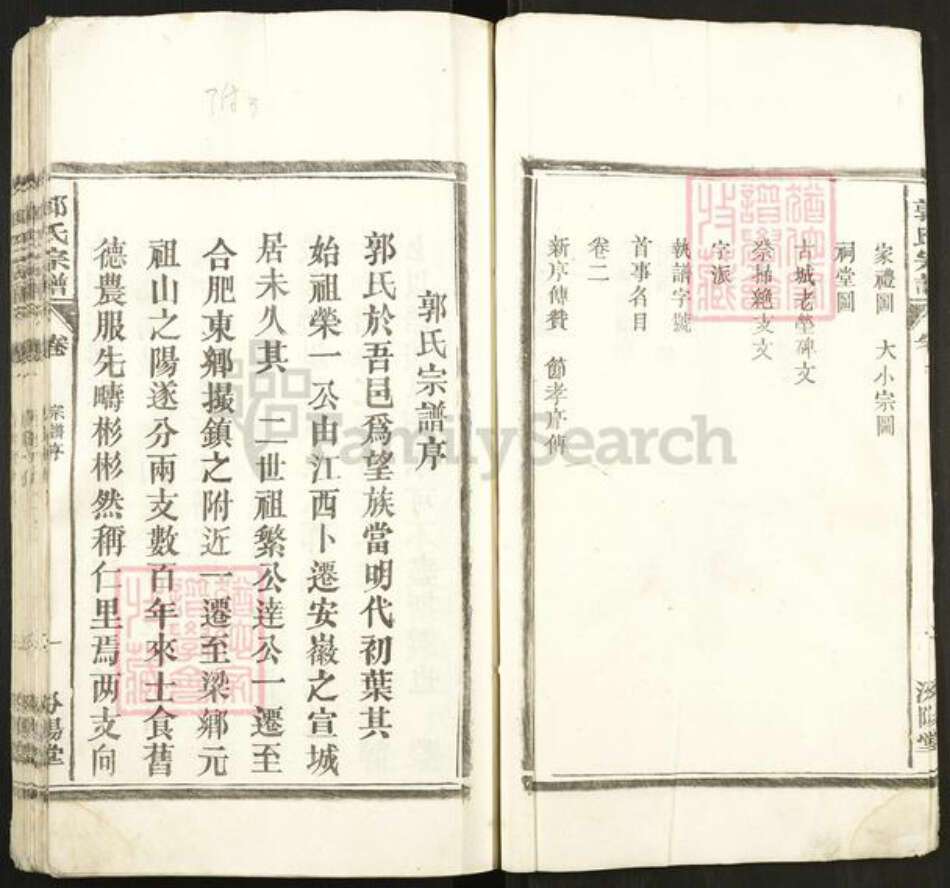 家禮圖 大小宗圖
祠堂圖
古城老塋碑文
祭掃絶支文
字派
執譜字號
首事名目
卷二
新序傳贊 節孝序傳
郭氏宗譜序
郭氏於吾邑爲望族當明代初葉其
始祖榮一公由江西卜遷安徽之宣城
居未久其 二世祖繁公達公一遷至
合肥東鄉撮鎮之附近一遷至梁鄉元
祖山之陽遂分兩支數百年來士食舊
德農服先疇彬彬然稱仁里焉两支向
郭氏宗譜 卷 宗譜序 一
FamilySearch